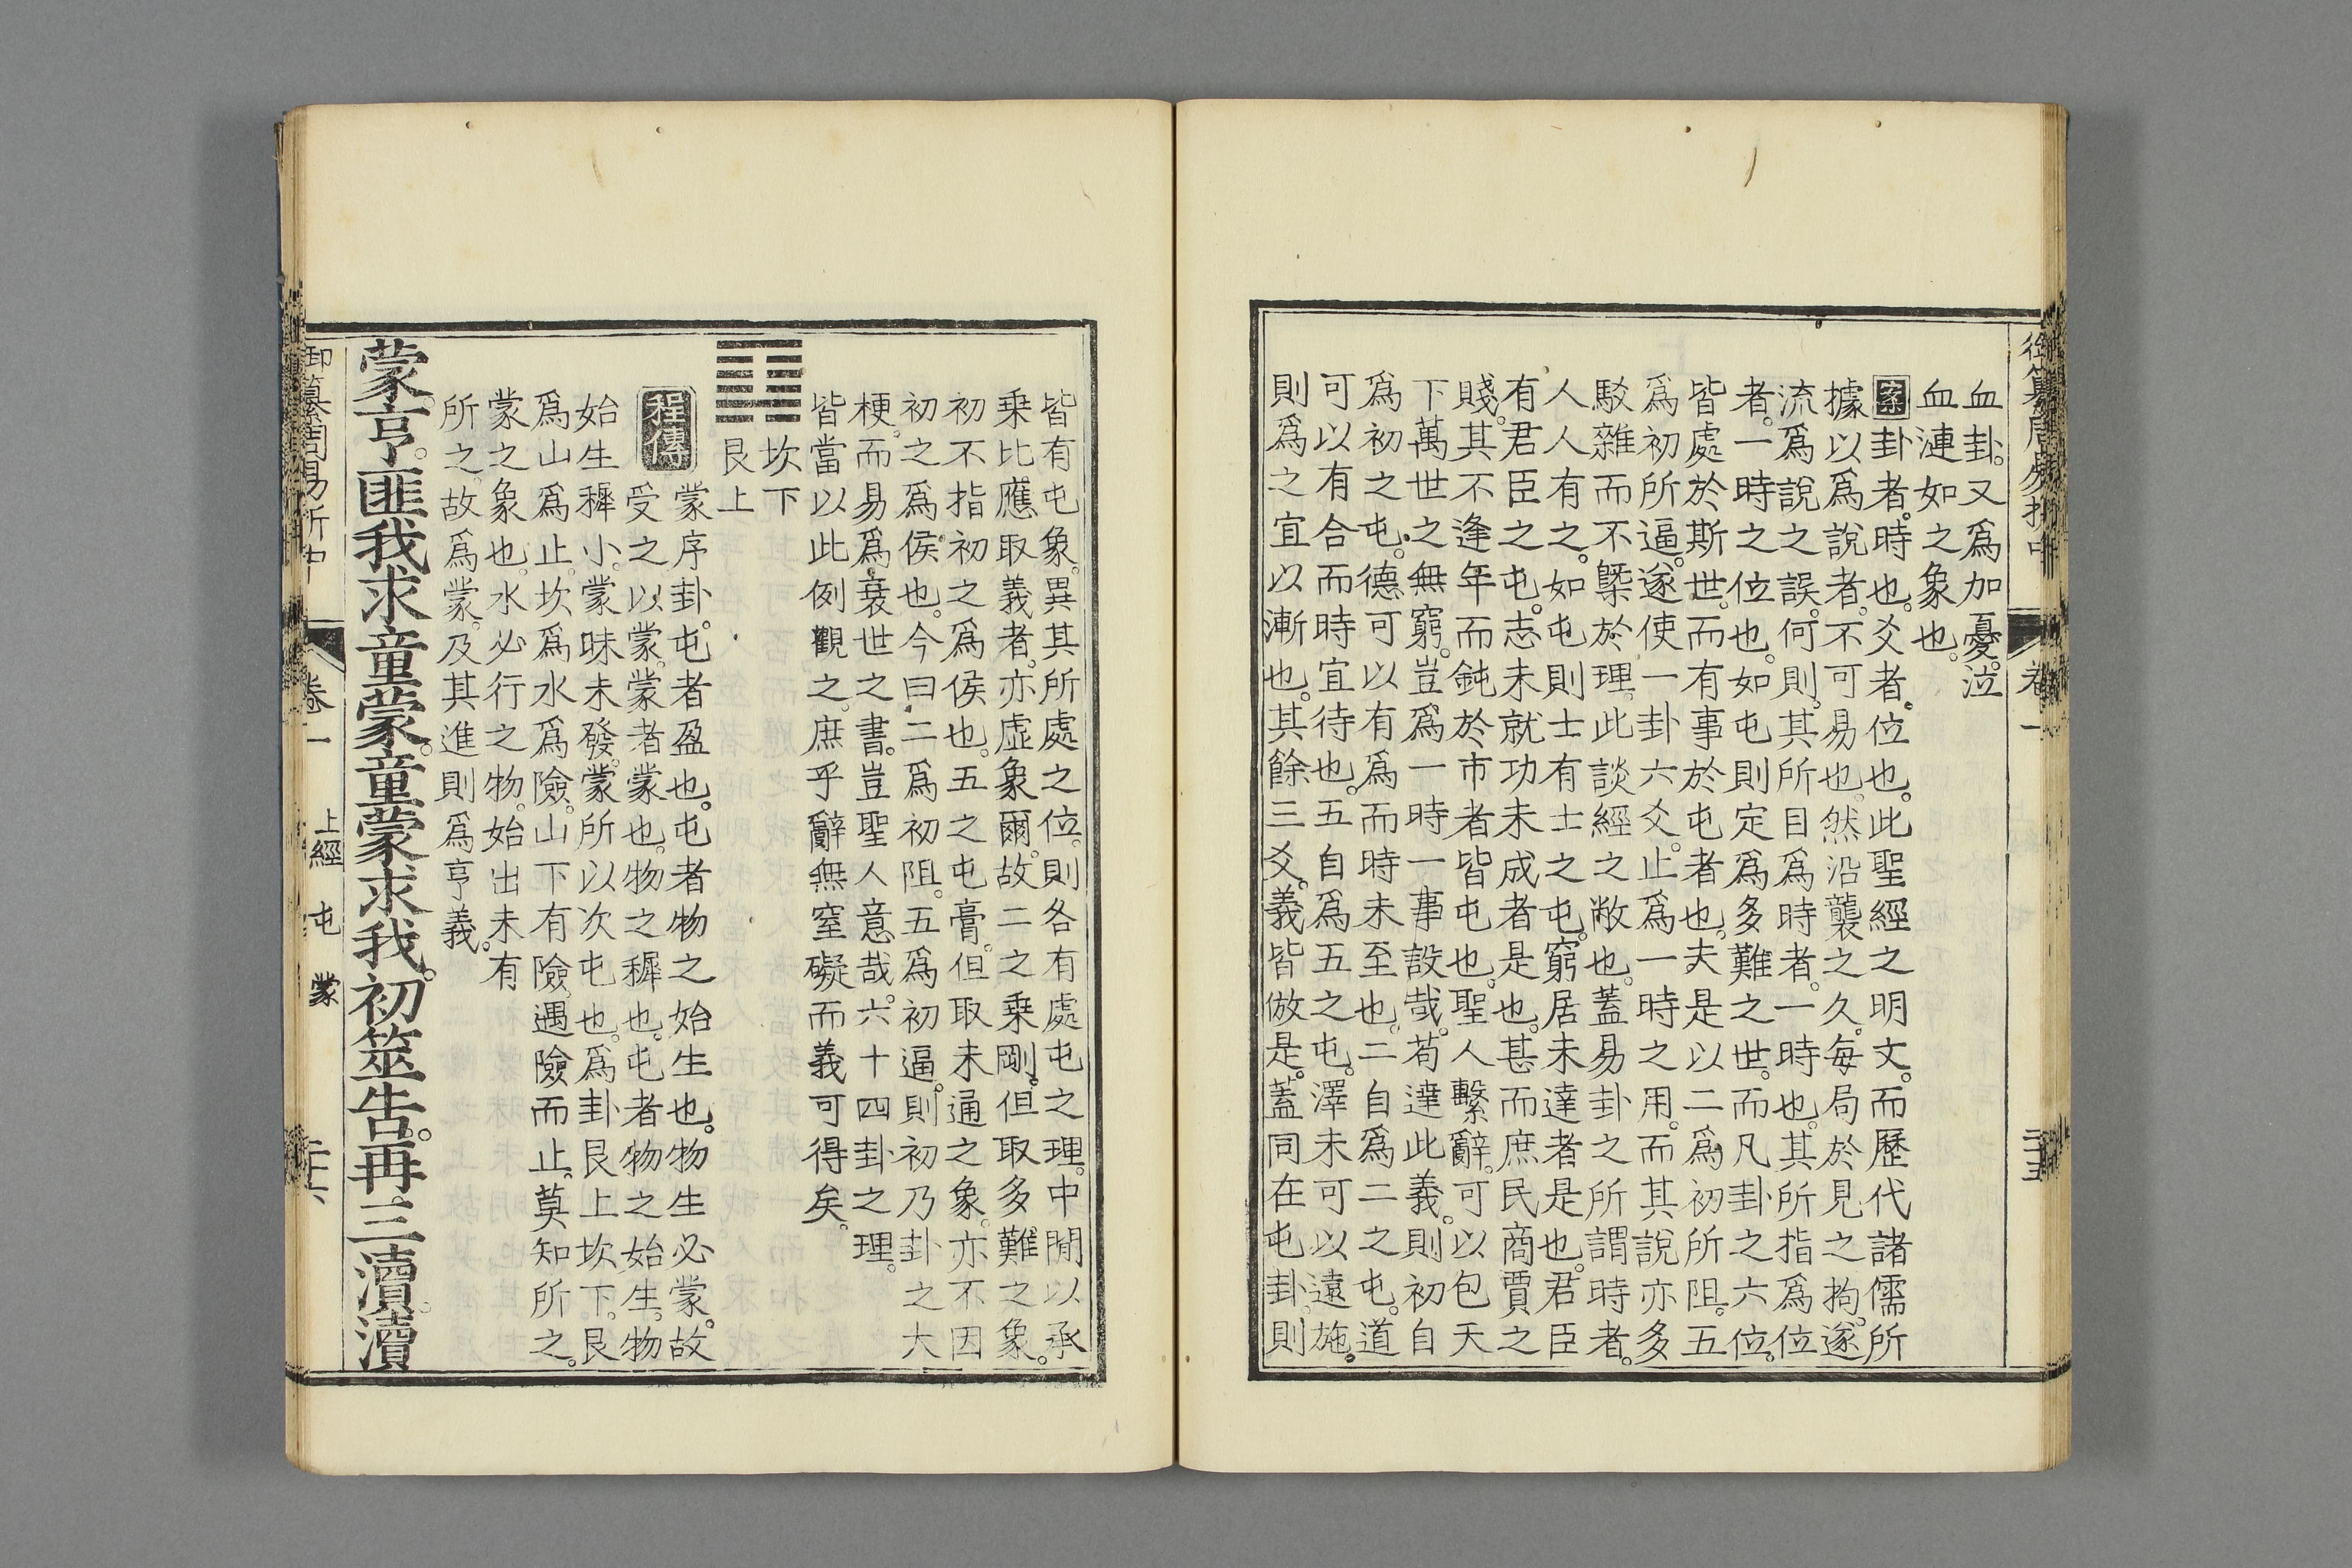 御纂周易折中 卷一 二十五
血卦。又爲加憂。泣
血漣如之象也。
案卦者。時也。爻者。位也。此聖經之明文。而歷代諸儒所
據以爲說者。不可易也。然沿襲之久。每局於見之拘。遂
流爲說之誤。何則。其所目爲時者。一時也。其所指爲位
者。一時之位也。如屯則定爲多難之世。而凡卦之六位。
皆處於斯世。而有事於屯者也。夫是以二爲初所阻。五
爲初所逼。遂使一卦六爻。止爲一時之用。而其說亦多
駁雜而不槩於理。此談經之敝也。蓋易卦之所謂時者。
人人有之。如屯則士有士之屯。窮居未達者是也。君臣
有君臣之屯。志未就功未成者是也。甚而庶民商賈之
賤。其不逢年而鈍於市者皆屯也。聖人繫辭。可以包天
下萬世之無窮。豈爲一時一事設哉。苟達此義。則初自
爲初之屯。德可以有爲而時未至也。二自爲二之屯。道
可以有合而時宜待也。五自爲五之屯。澤未可以遠施。
則爲之宜以漸也。其餘三爻。義皆倣是。蓋同在屯卦。則
皆有屯象。異其所處之位。則各有處屯之理。中閒以承
乘比應取義者。亦虛象爾。故二之乘剛。但取多難之象。
初不指初之爲侯也。五之屯膏。但取未通之象。亦不因
初之爲侯也。今曰二爲初阻。五爲初逼。則初乃卦之大
梗。而易爲衰世之書。豈聖人意哉。六十四卦之理。
皆當以此例觀之。庶乎辭無窒礙而義可得矣。
坎下
艮上
程傳 蒙序卦。屯者盈也。屯者物之始生也。物生必蒙。故
受之以蒙。蒙者蒙也。物之穉也。屯者物之始生。物
始生穉小。蒙昧未發。蒙所以次屯也。爲卦艮上坎下。艮
爲山爲止。坎爲水爲險。山下有險。遇險而止。莫知所之。
蒙之象也。水必行之物。始出未有
所之。故爲蒙。及其進則爲亨義。
蒙亨。匪我求童蒙。童蒙求我。初筮告。再三瀆。瀆
御纂周易折中 卷一 上經 屯 蒙 二十六